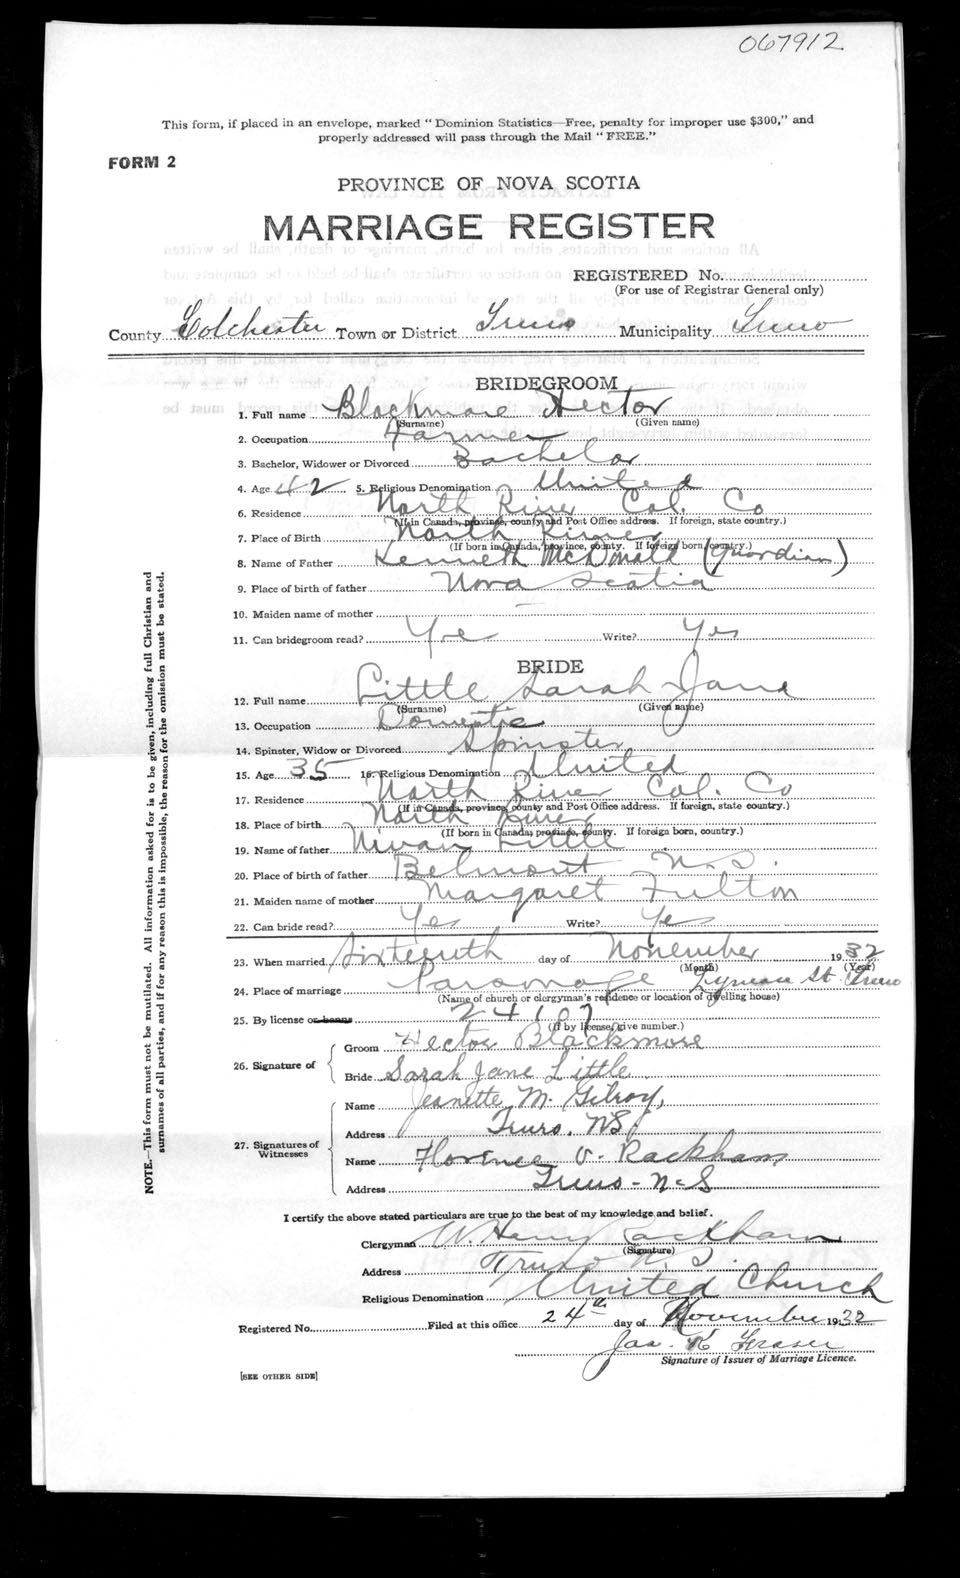 067912
This form, if placed in an envelope, marked "Dominion Statistics—Free, penalty for improper use $300," and
properly addressed will pass through the Mail "FREE."
FORM 2
PROVINCE OF NOVA SCOTIA
MARRIAGE REGISTER
REGISTERED No.
(For use of Registrar General only)
County Colchester Town or District Truro Municipality Truro
BRIDEGROOM
1. Full name Blackmore Hector
(Surname) (Given name)
2. Occupation Farmer
3. Bachelor, Widower or Divorced Bachelor
4. Age 42 5. Religious Denomination United
6. Residence North River Col. Co
(If in Canada, province, county and Post Office address. If foreign, state country.)
7. Place of Birth North River
(If born in Canada, province, county. If foreign born, country.)
8. Name of Father Kenneth McDonald (Guardian)
9. Place of birth of father Nova Scotia
10. Maiden name of mother —
11. Can bridegroom read? Yes Write? Yes
BRIDE
12. Full name Little Sarah Jane
(Surname) (Given name)
13. Occupation Domestic
14. Spinster, Widow or Divorced Spinster
15. Age 35 16. Religious Denomination United
17. Residence North River Col. Co
(If in Canada, province, county and Post Office address. If foreign, state country.)
18. Place of birth North River
(If born in Canada, province, county. If foreign born, country.)
19. Name of father Nivan Little
20. Place of birth of father Belmont N.S.
21. Maiden name of mother Margaret Fulton
22. Can bride read? Yes Write? Yes
23. When married Sixteenth day of November 1932
(Month) (Year)
24. Place of marriage Parsonage Lyman St. Truro
(Name of church or clergyman's residence or location of dwelling house)
25. By license or banns 24167
(If by license, give number.)
26. Signature of
Groom Hector Blackmore
Bride Sarah Jane Little
27. Signatures of Witnesses
Name Jeanette M. Gilroy,
Address Truro, NS
Name Florence V. Rackham
Address Truro - N.S
I certify the above stated particulars are true to the best of my knowledge and belief.
Clergyman W. Henry Rackham
(Signature)
Address Truro N.S.
Religious Denomination United Church
Registered No. Filed at this office 24th day of November 1932
Jas. K Fraser
Signature of Issuer of Marriage Licence.
[SEE OTHER SIDE]
NOTE.—This form must not be mutilated. All information asked for is to be given, including full Christian and
surnames of all parties, and if for any reason this is impossible, the reason for the omission must be stated.